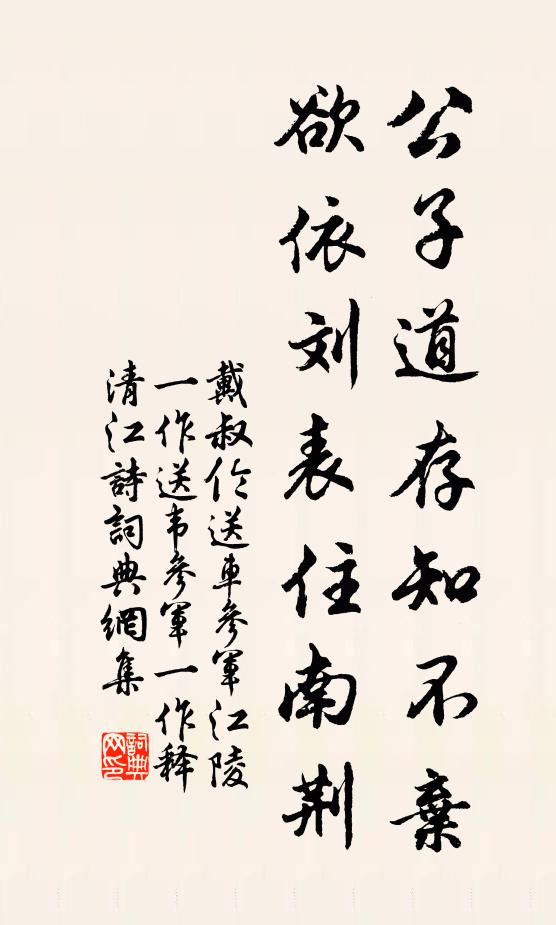 公子道存知不棄
欲依刘表住南荆
戴叔伦送車參軍江陵
一作送韦參軍一作释
清江詩詞典網集
詞典网印